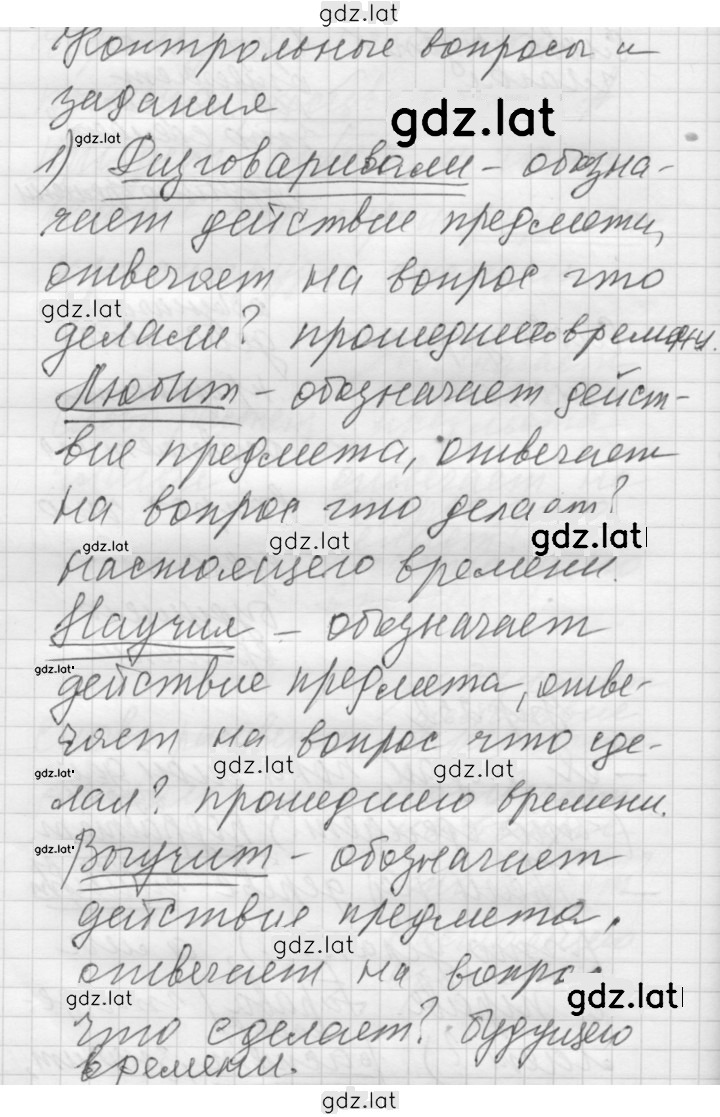 gdz.lat
Контрольные вопросы и
задания
gdz.lat
gdz.lat
1) Разговаривали – обозна-
чает действие предмета,
отвечает на вопрос что
gdz.lat
делали? прошедшего времени.
Любит – обозначает дейст-
вие предмета, отвечает
на вопрос что делает?
gdz.lat
gdz.lat
gdz.lat
настоящего времени.
Научил – обозначает
gdz.lat
действие предмета, отве-
чает на вопрос что сде-
gdz.lat
gdz.lat
gdz.lat
лал? прошедшего времени.
gdz.lat
Выучит – обозначает
действие предмета,
gdz.lat
отвечает на вопрос
gdz.lat
gdz.lat
что сделает? будущего
времени.
gdz.lat